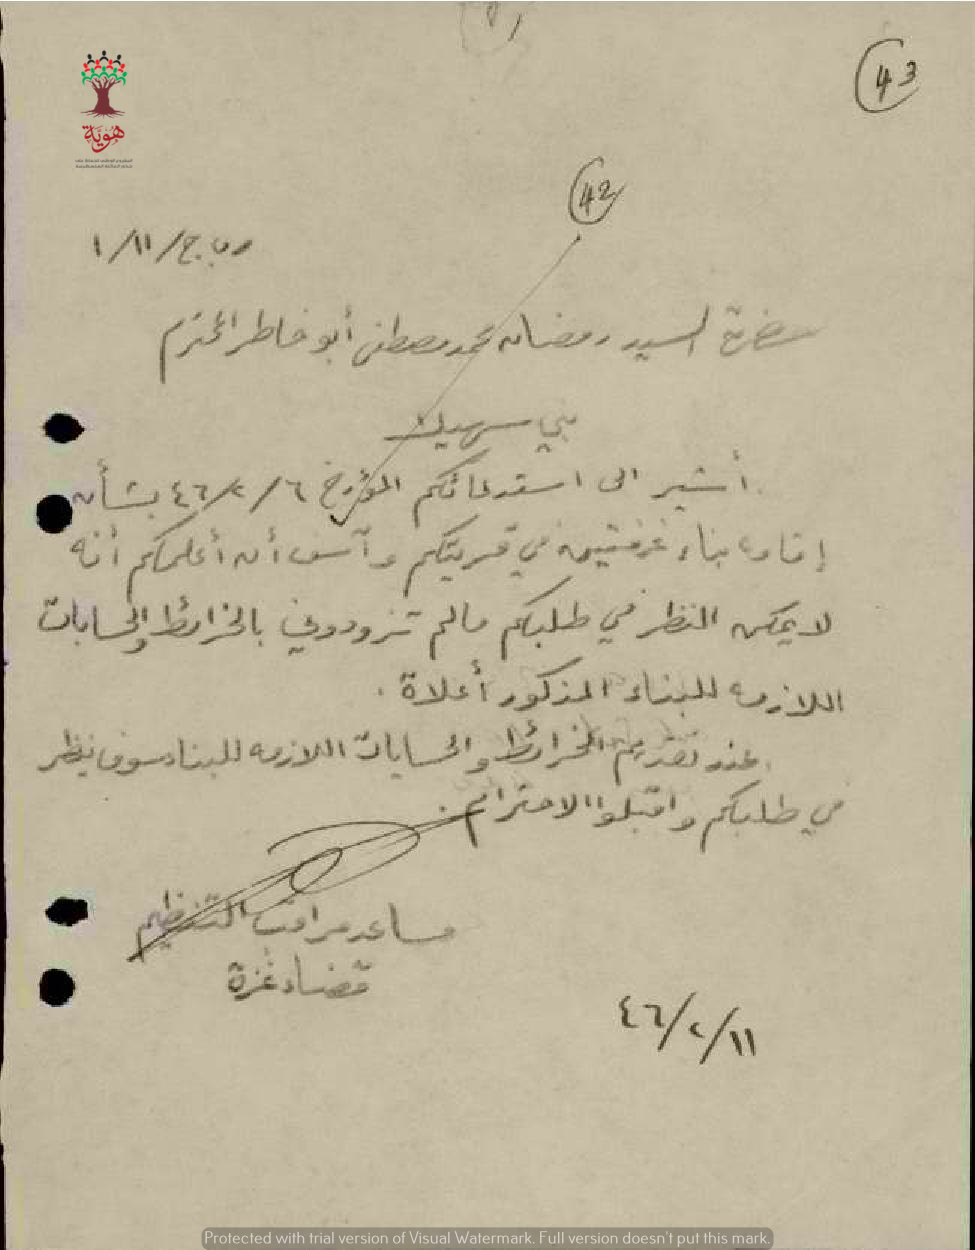 43
42
١/١١/ج
حضرة السيد رمضان محمد مصطفى أبو خاطر المحترم
بني سهيله
أشير الى استدعائكم المؤرخ ٤٦/٢/٦ بشأن
بناء غرفتين في قريتكم وآسف أن أعلمكم أنه
لا يمكن النظر في طلبكم مالم تزودوني بالخرائط والحسابات
اللازمه للبناء المذكور أعلاة .
عند تقديم الخرائط والحسابات اللازمه للبناء سوف ينظر
في طلبكم واقبلوا الاحترام .
مساعد مراقب التنظيم
قضاء غزة
٤٦/٢/١١
هوية
Protected with trial version of Visual Watermark. Full version doesn't put this mark.